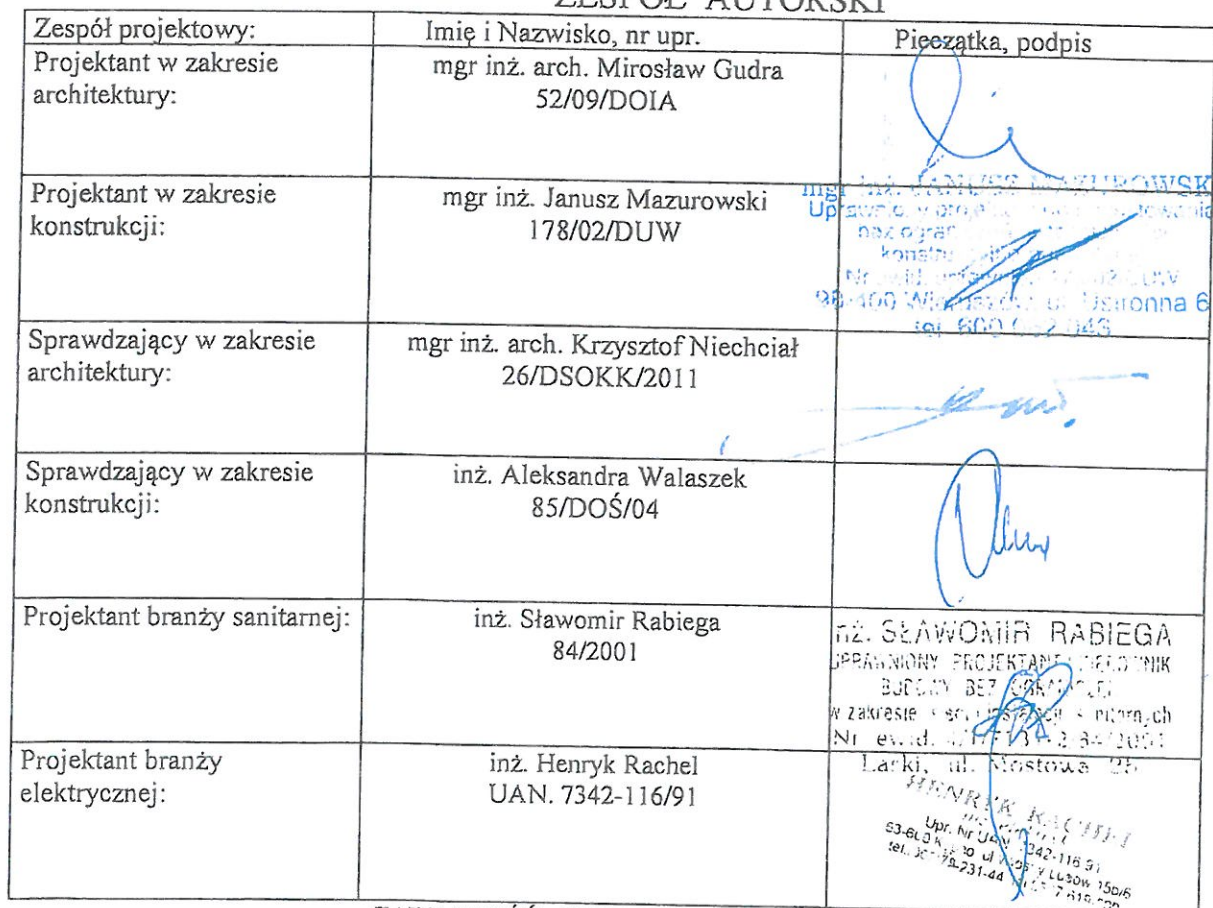 ZESPÓŁ AUTORSKI
Zespół projektowy:
Imię i Nazwisko, nr upr.
Pieczątka, podpis
Projektant w zakresie
architektury:
mgr inż. arch. Mirosław Gudra
52/09/DOIA
Projektant w zakresie
konstrukcji:
mgr inż. Janusz Mazurowski
178/02/DUW
mgr inż. JANUSZ MAZUROWSK
Ustronna 6
tel. 600
Sprawdzający w zakresie
architektury:
mgr inż. arch. Krzysztof Niechciał
26/DSOKK/2011
Sprawdzający w zakresie
konstrukcji:
inż. Aleksandra Walaszek
85/DOŚ/04
Projektant branży sanitarnej:
inż. Sławomir Rabiega
84/2001
inż. SŁAWOMIR RABIEGA
UPRAWNIONY PROJEKTANT
w zakresie
Nr ewid.
Łarki, ul. Mostowa 2b
Projektant branży
elektrycznej:
inż. Henryk Rachel
UAN. 7342-116/91
HENRYK RACHEL
Upr. Nr UAN 7342-116/91